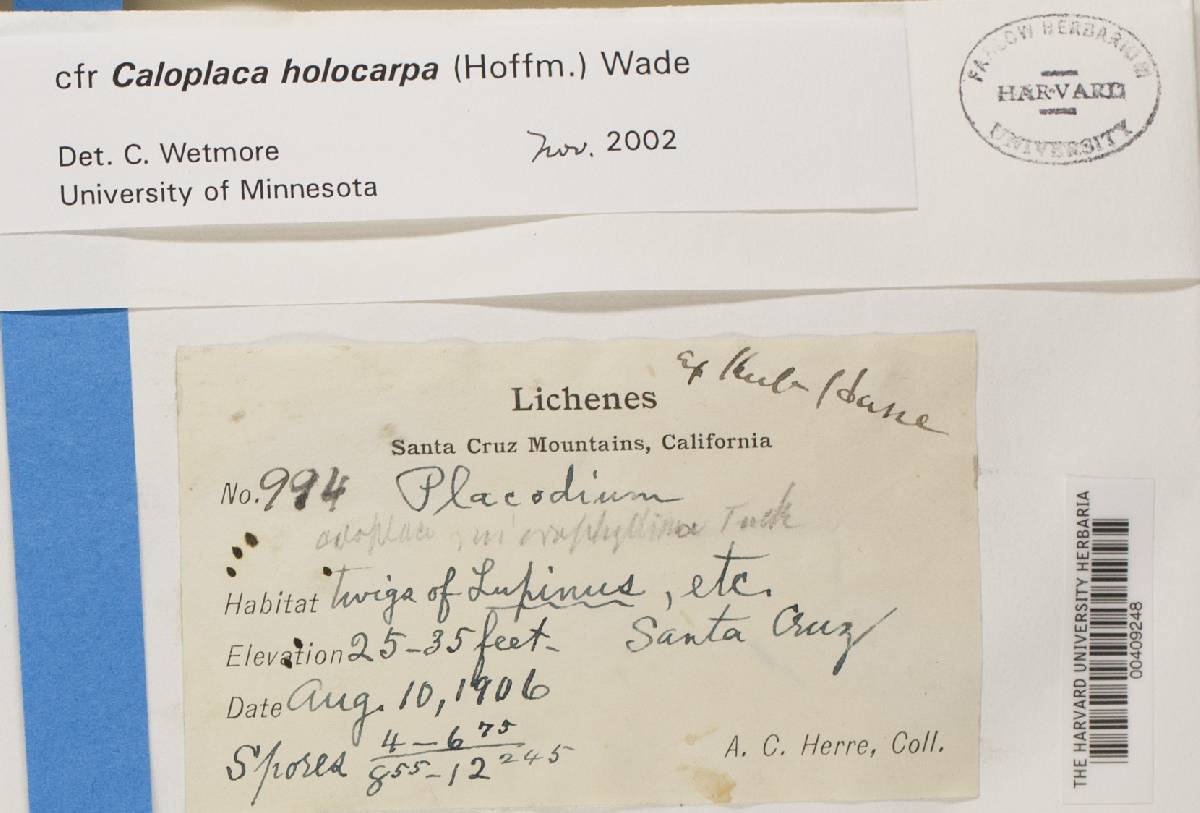 cfr Caloplaca holocarpa (Hoffm.) Wade
Det. C. Wetmore Nov. 2002
University of Minnesota
FARLOW HERBARIUM
HARVARD
UNIVERSITY
ex Herb Hasse
Lichenes
Santa Cruz Mountains, California
No. 994 Placodium
microphyllina Tuck
Habitat twigs of Lupinus, etc.
Elevation 25-35 feet. Santa Cruz
Date Aug. 10, 1906
Spores 4-6 75
8 55-12 245
A. C. Herre, Coll.
THE HARVARD UNIVERSITY HERBARIA
00409248